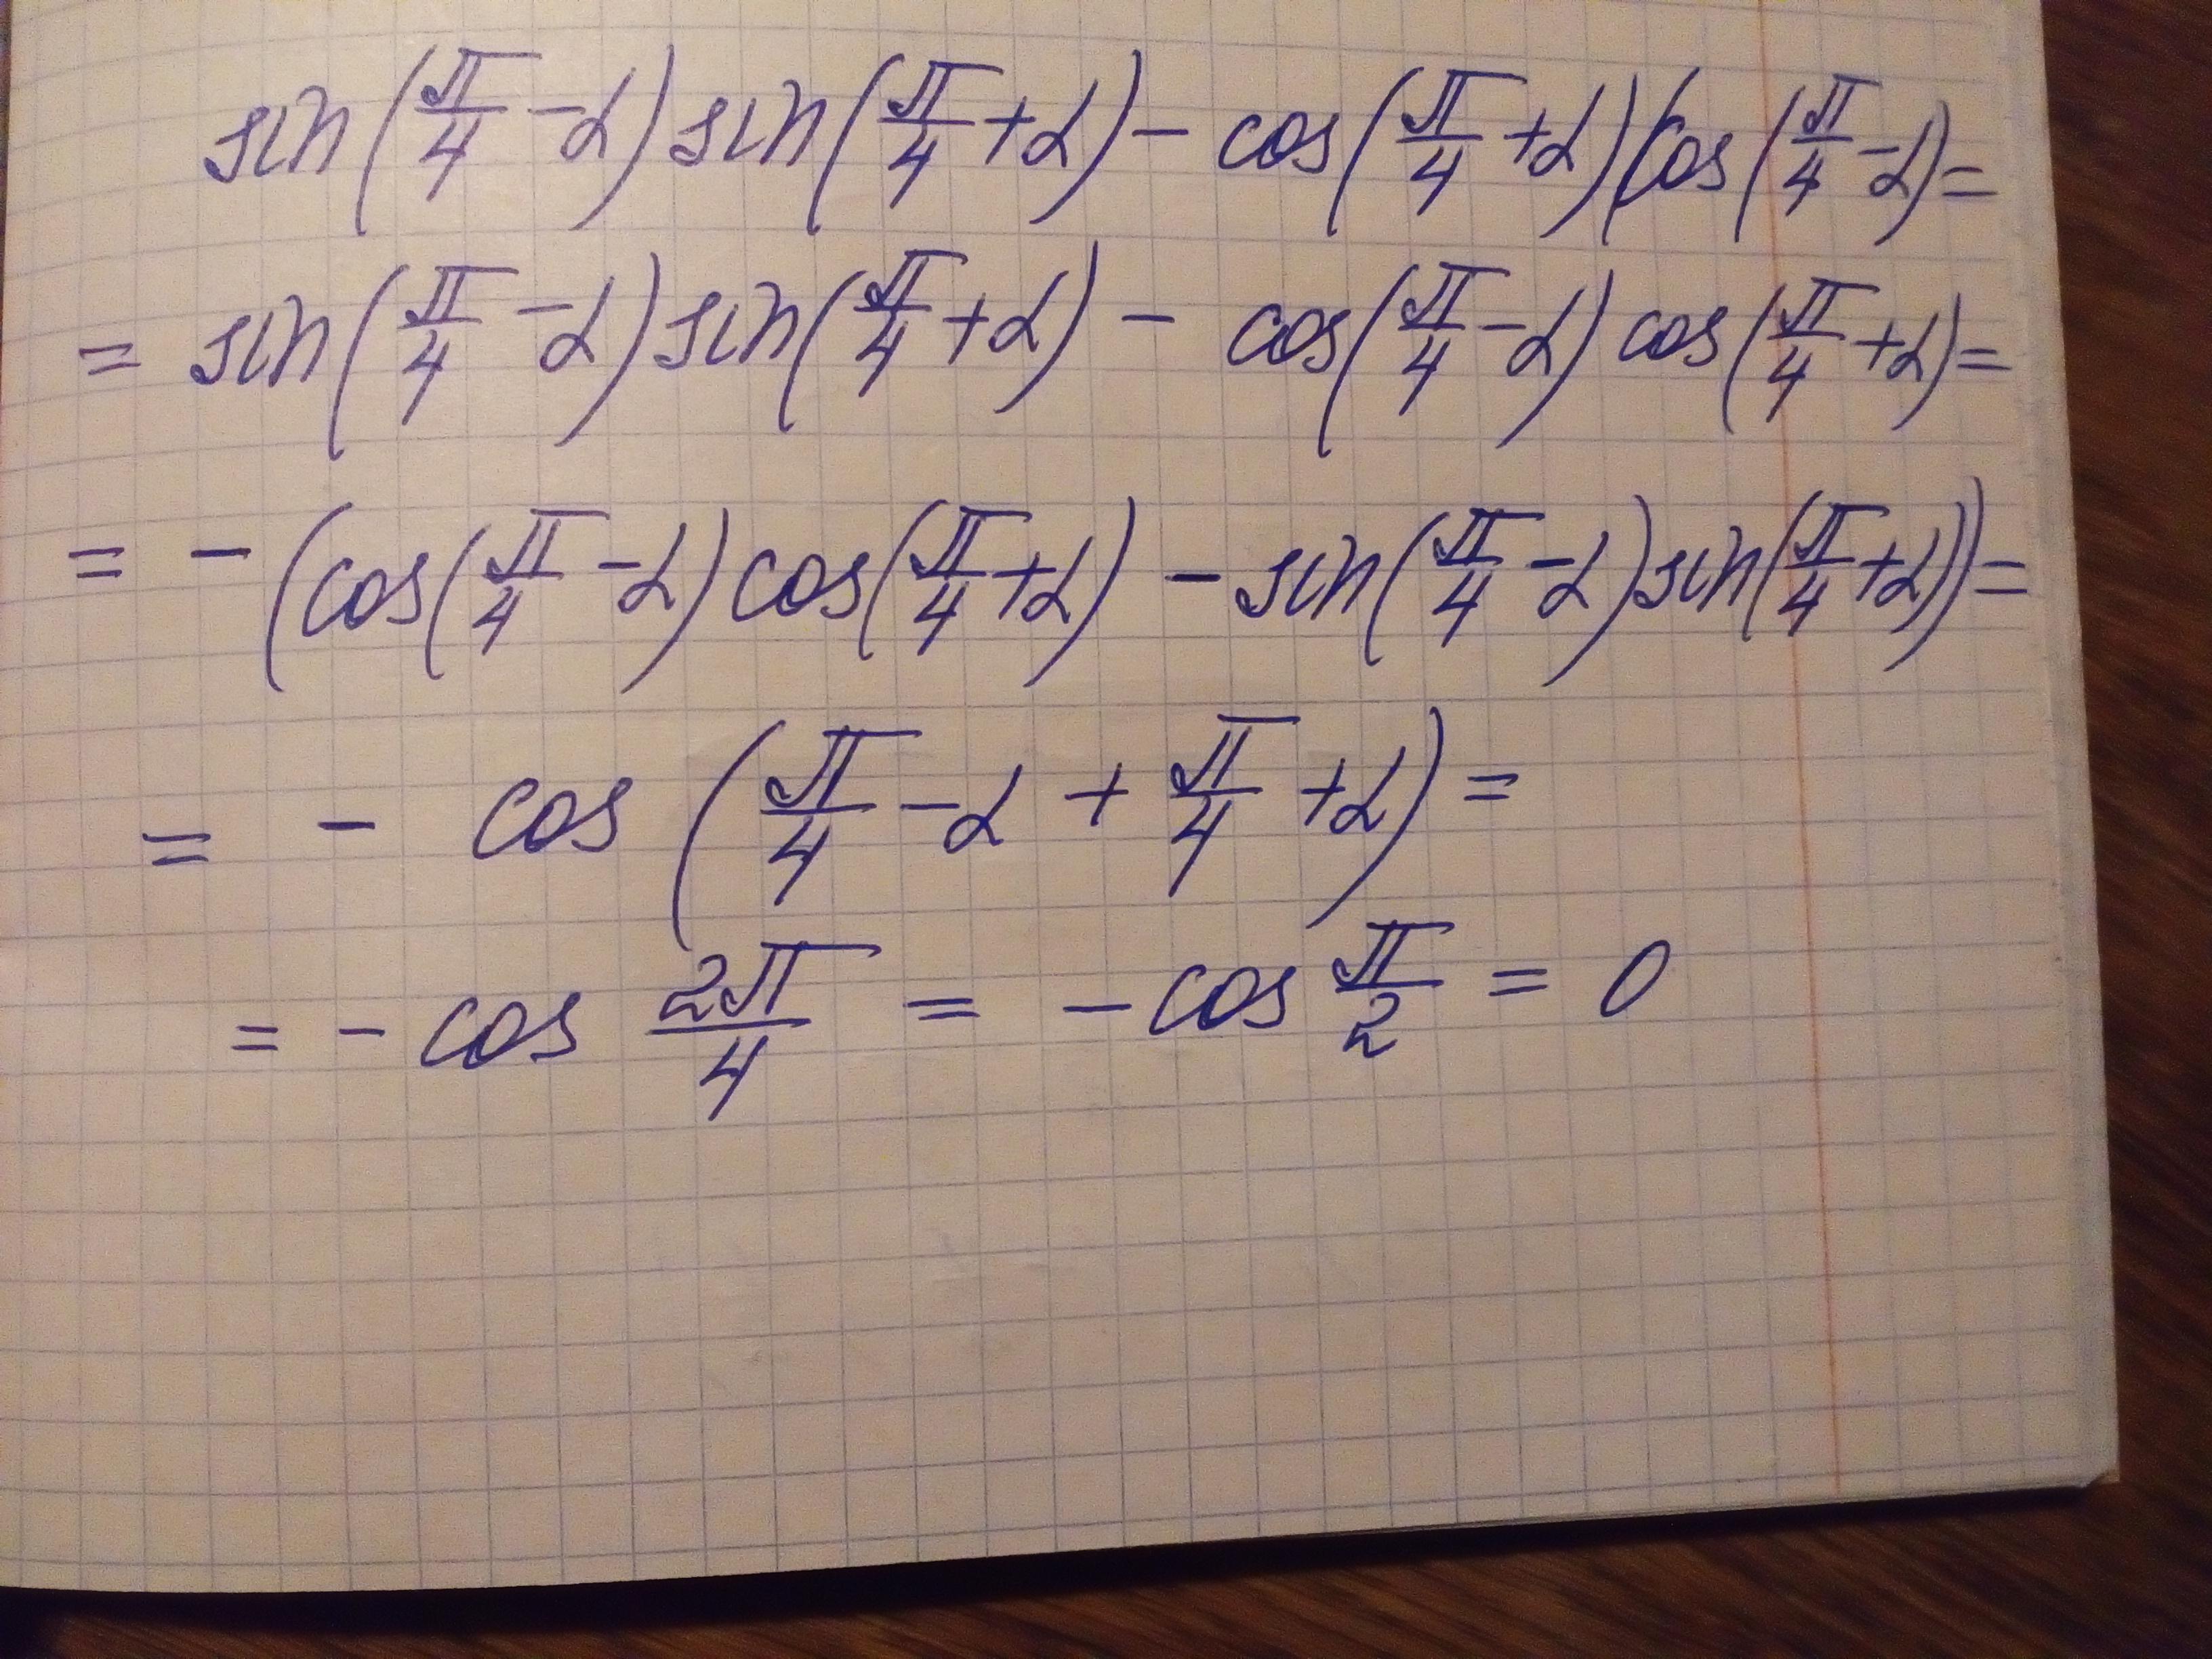 sin(π/4 - α) sin(π/4 + α) - cos(π/4 + α) cos(π/4 - α) =
= sin(π/4 - α) sin(π/4 + α) - cos(π/4 - α) cos(π/4 + α) =
= - (cos(π/4 - α) cos(π/4 + α) - sin(π/4 - α) sin(π/4 + α)) =
= - cos (π/4 - α + π/4 + α) =
= - cos 2π/4 = - cos π/2 = 0